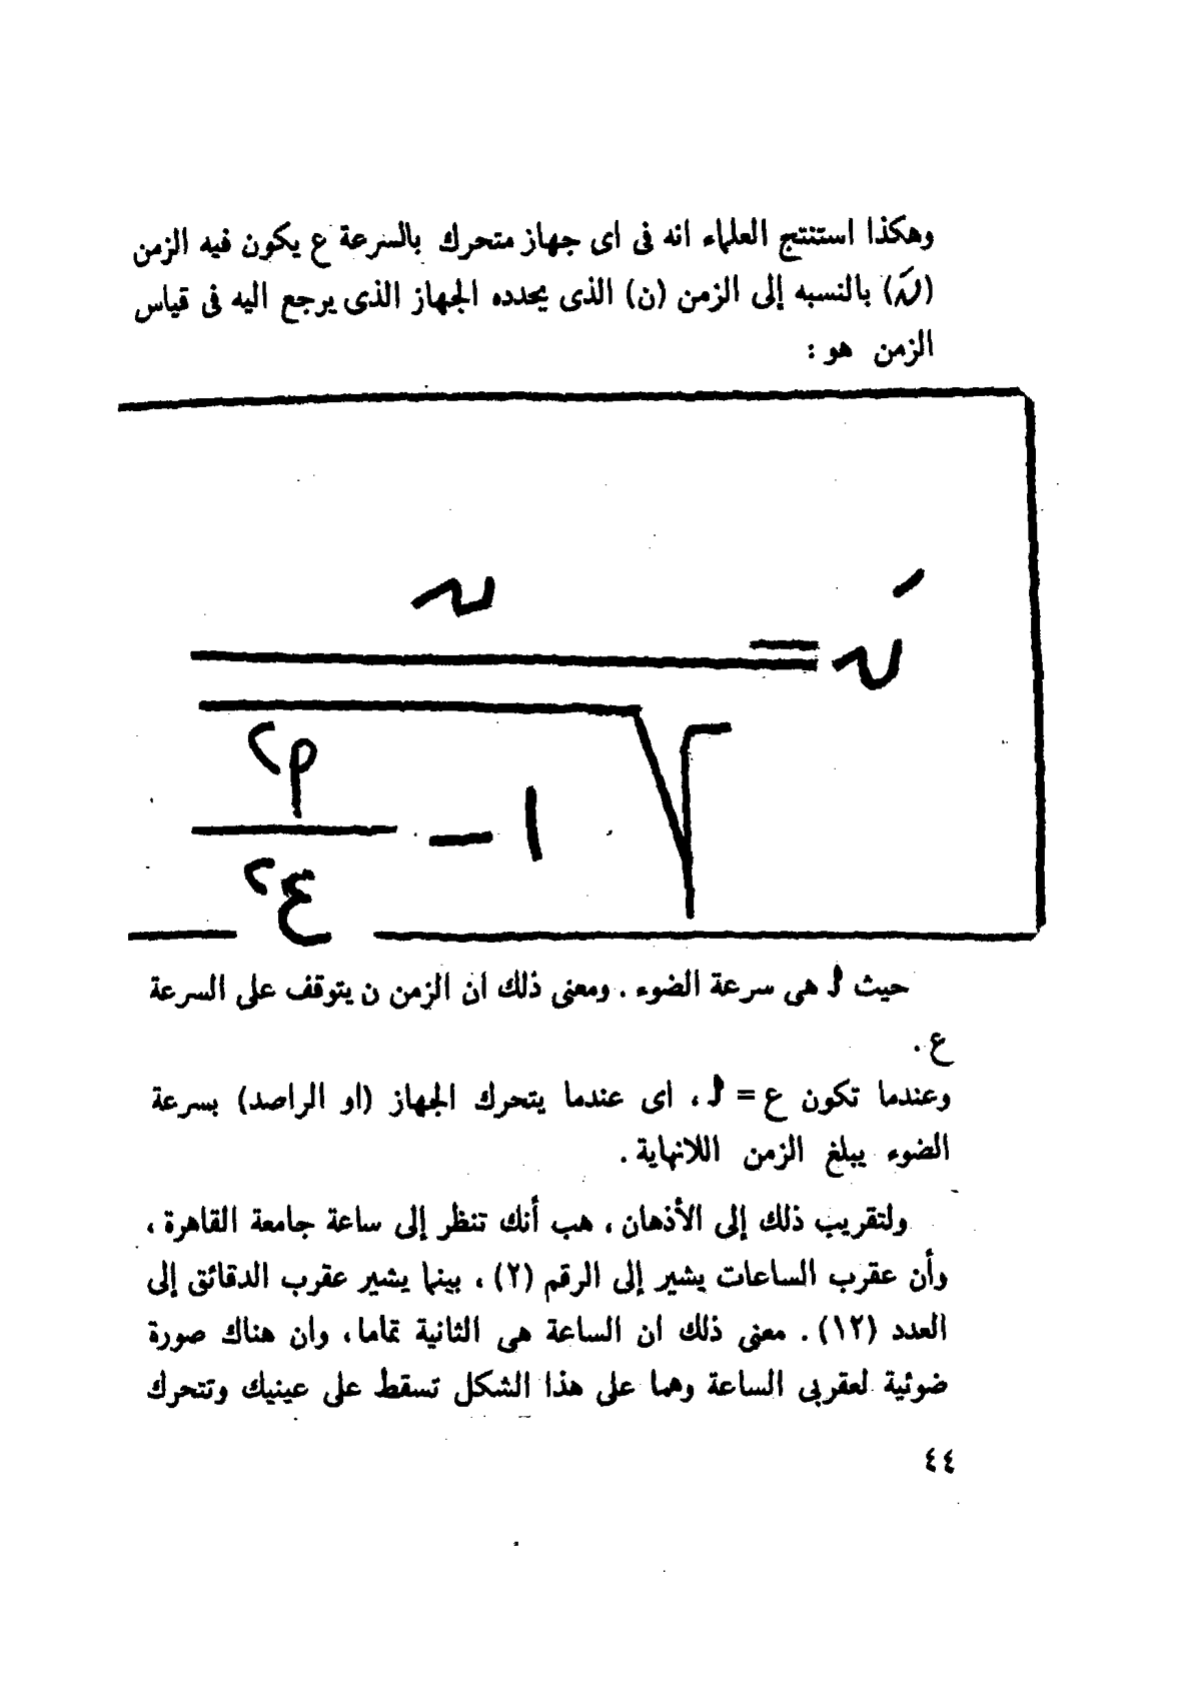 وهكذا استنتج العلماء انه فى اى جهاز متحرك بالسرعة ع يكون فيه الزمن
(نَ) بالنسبه إلى الزمن (ن) الذى يحدده الجهاز الذى يرجع اليه فى قياس
الزمن هو :
نَ = ن
√ ١ - م٢
ع٢
حيث م هى سرعة الضوء . ومعنى ذلك ان الزمن ن يتوقف على السرعة
ع .
وعندما تكون ع = م ، اى عندما يتحرك الجهاز (او الراصد) بسرعة
الضوء يبلغ الزمن اللانهاية .
ولتقريب ذلك إلى الأذهان ، هب أنك تنظر إلى ساعة جامعة القاهرة ،
وأن عقرب الساعات يشير إلى الرقم (٢) ، بينما يشير عقرب الدقائق إلى
العدد (١٢) . معنى ذلك ان الساعة هى الثانية تماما ، وان هناك صورة
ضوئية لعقربى الساعة وهما على هذا الشكل تسقط على عينيك وتتحرك
٤٤